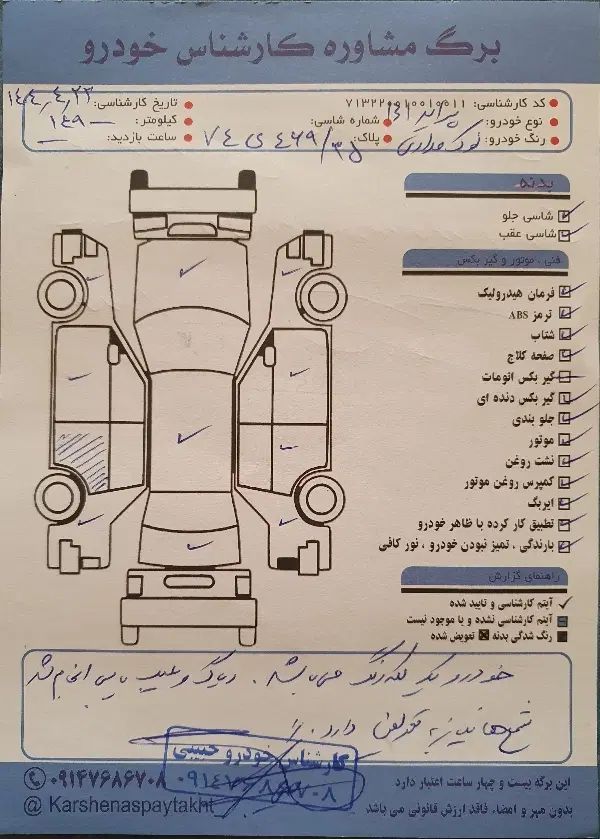 برگ مشاوره کارشناس خودرو
کد کارشناسی: ۷۱۳۲۲۰۰۱۰۰۱۰۰۱۱
تاریخ کارشناسی: ۱۴۰۴٫۴٫۲۳
نوع خودرو: پراید
شماره شاسی:
کیلومتر: ۱۴۹۰۰۰
رنگ خودرو: نوک مدادی
پلاک: ۷۴ ی ۴۶۹/۳۵
ساعت بازدید:
بدنه
شاسی جلو
شاسی عقب
فنی ، موتور و گیر بکس
فرمان هیدرولیک
ترمز ABS
شتاب
صفحه کلاچ
گیر بکس اتومات
گیر بکس دنده ای
جلو بندی
موتور
نشت روغن
کمپرس روغن موتور
ایربگ
تطبیق کار کرده با ظاهر خودرو
بارندگی ، تمیز نبودن خودرو ، نور کافی
راهنمای گزارش
آیتم کارشناسی و تایید شده
آیتم کارشناسی نشده و یا موجود نیست
رنگ شدگی بدنه تعویض شده
خودرو یک لکه رنگ می باشد . دیاگ و عیب یابی انجام شد
شمع ها نیاز به تعویض دارد .
کارشناس خودرو حبیبی
این برگه بیست و چهار ساعت اعتبار دارد
۰۹۱۴۷۶۸۶۷۰۸
بدون مهر و امضاء فاقد ارزش قانونی می باشد
@ Karshenaspaytakht